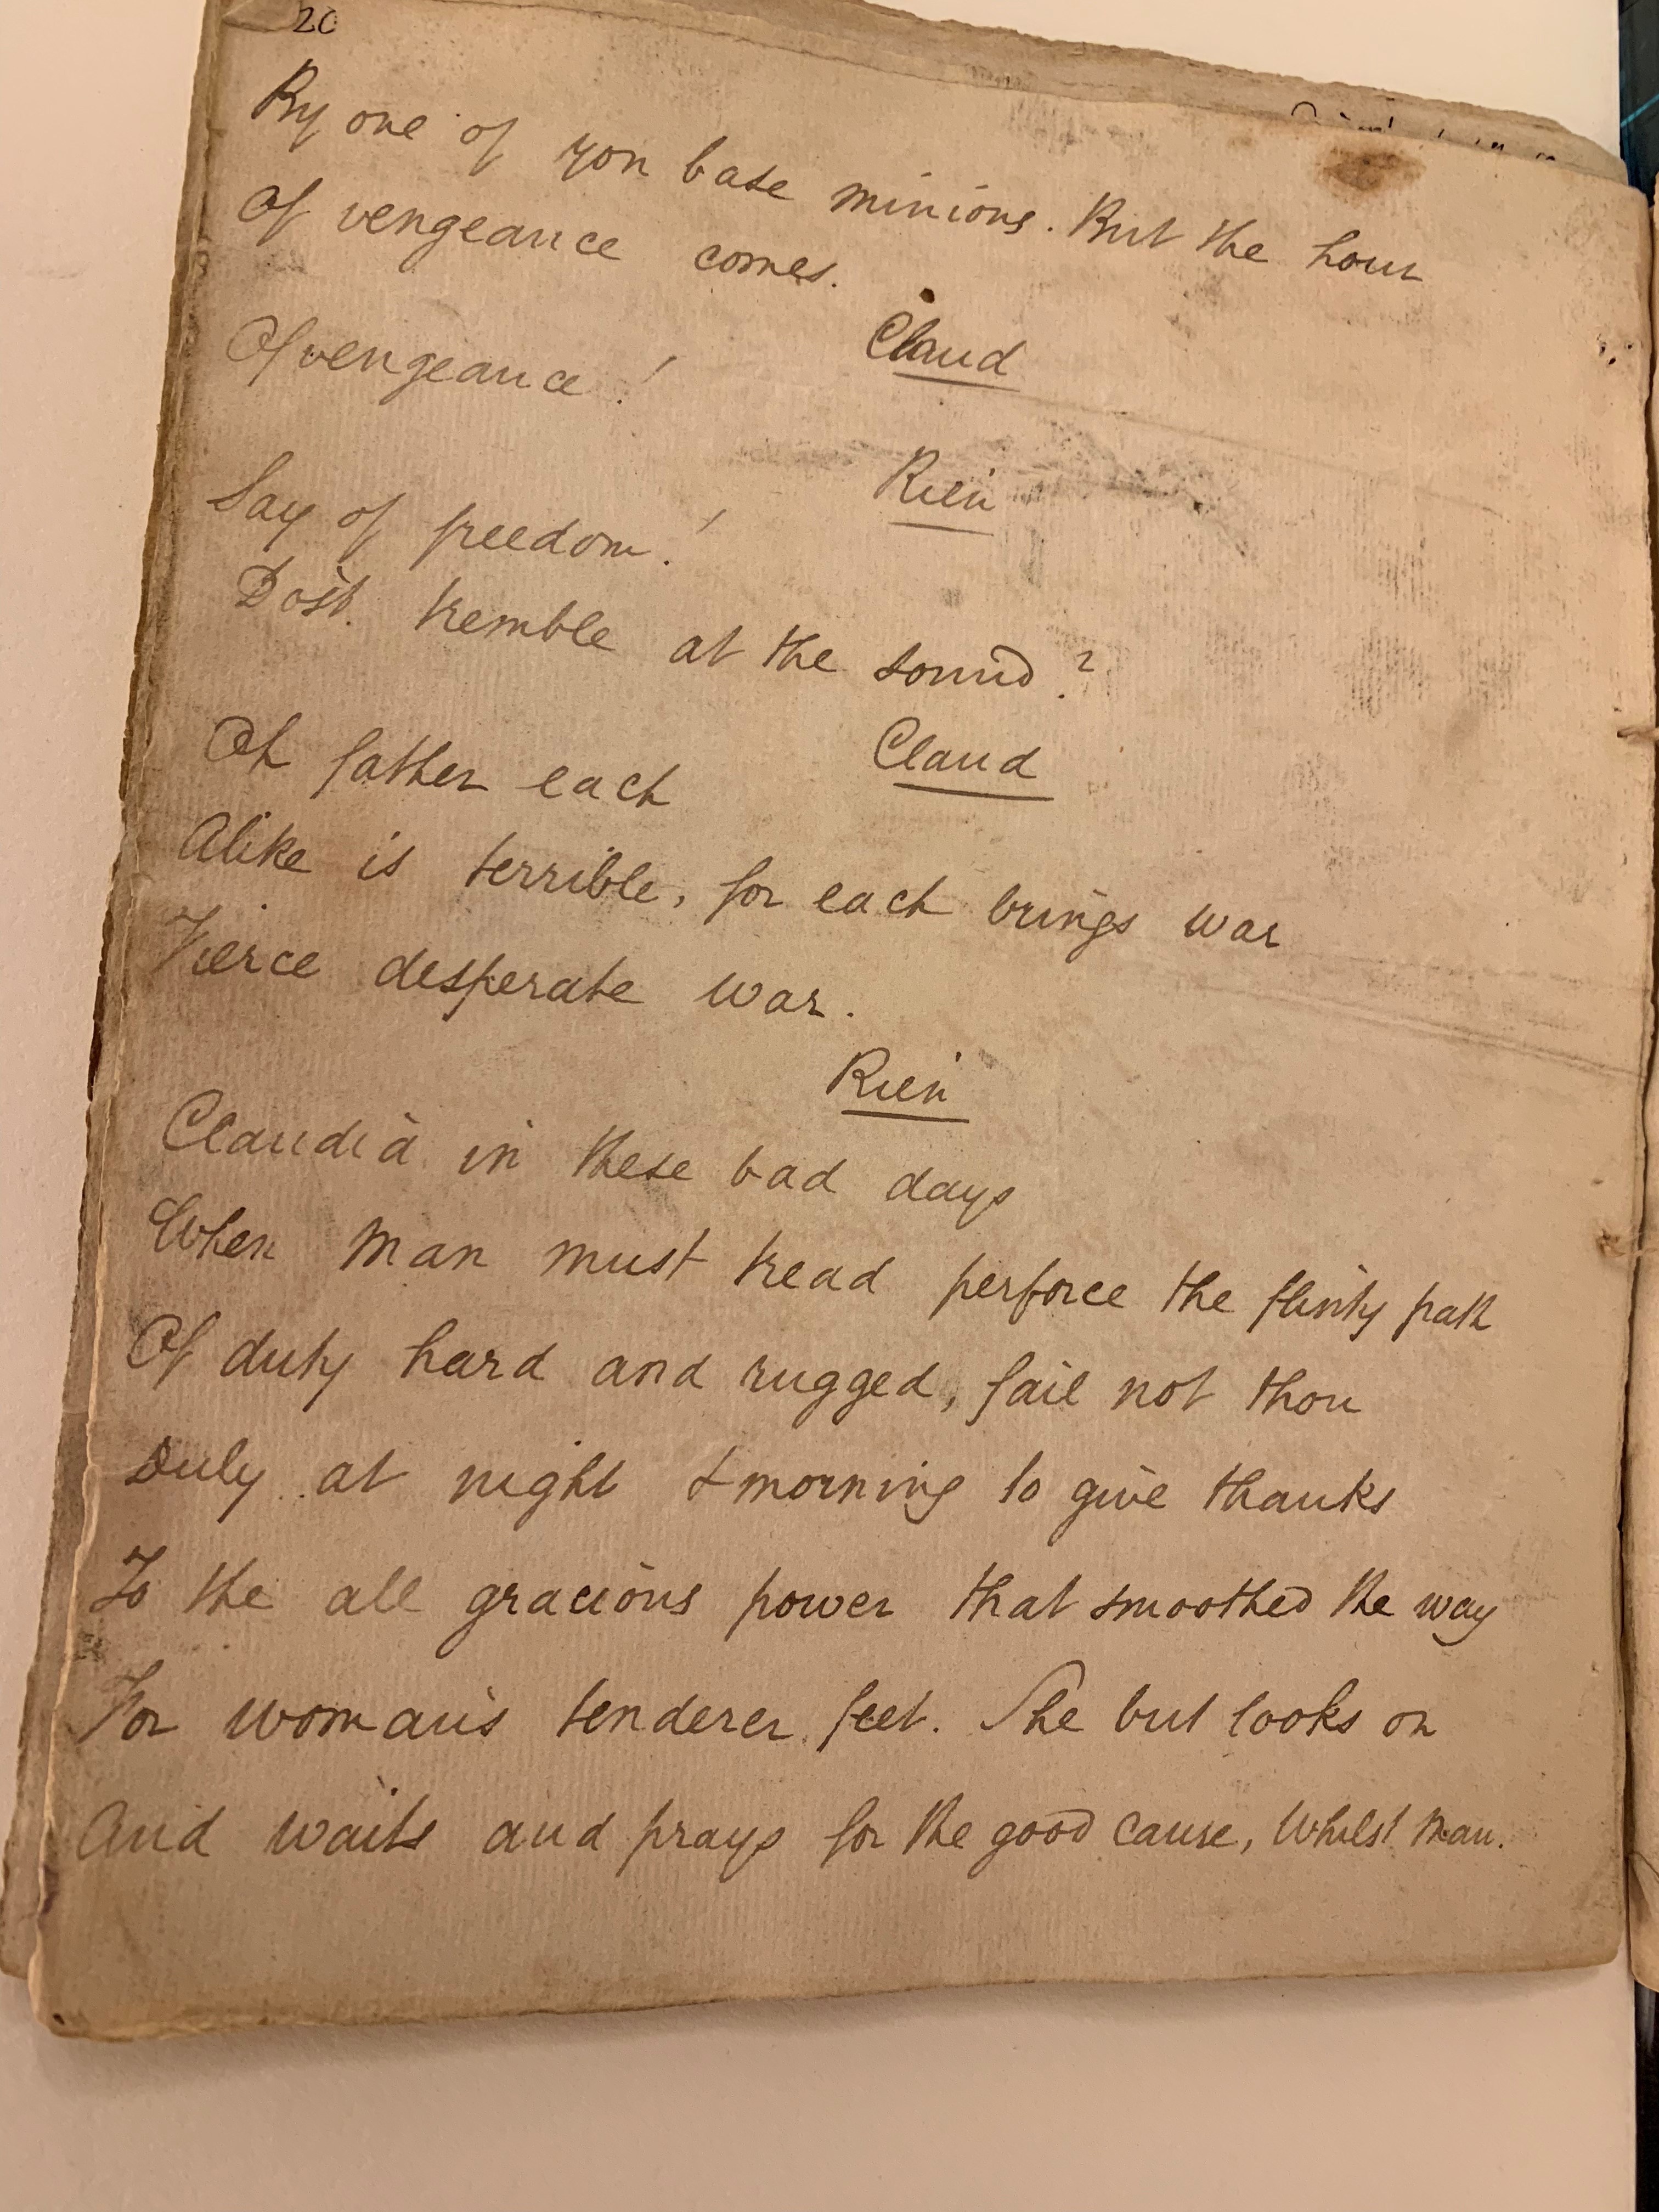 20
By one of yon base minions. But the hour
Of vengeance comes.
Claud
Of vengeance!
Rien
Say of freedom!
Dost tremble at the sound?
Claud
Oh father each
Alike is terrible, for each brings war
Fierce desperate war.
Rien
Claudia in these bad days
When man must tread perforce the flinty path
Of duty hard and rugged, fail not thou
Duly at night & morning to give thanks
To the all gracious power that smoothed the way
For woman's tenderer feet. She but looks on
And waits and prays for the good cause, whilst man.